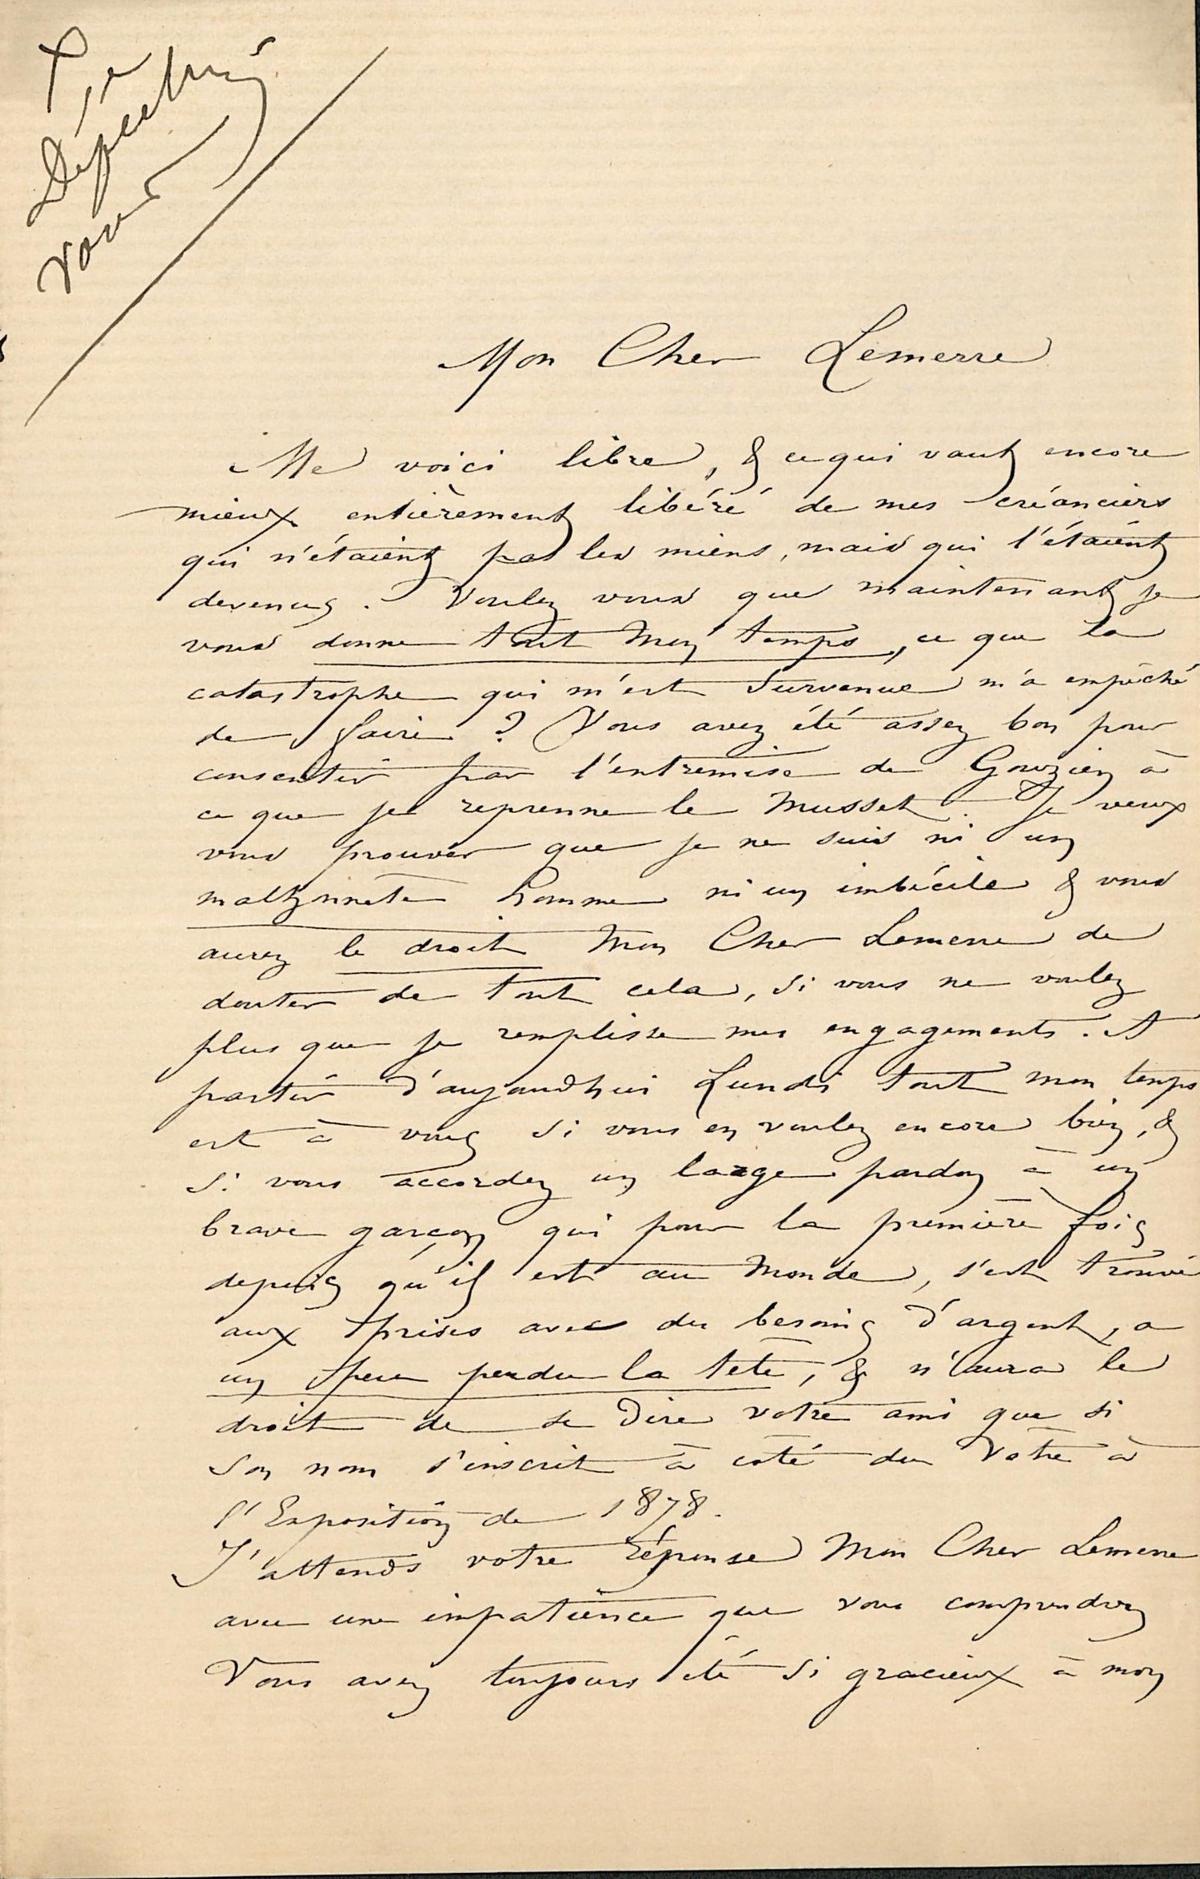 Mon Cher Lemerre
Me voici libre, & ce qui vaut encore
mieux entièrement libéré de mes créanciers
qui n'étaient pas les miens, mais qui l'étaient
devenus. Voulez vous que maintenant je
vous donne tout mon temps, ce que la
catastrophe qui m'est survenue m'a empêché
de faire ? Vous avez été assez bon pour
consentir par l'entremise de Gouzien à
ce que je reprenne le Musset. Je veux
vous prouver que je ne suis ni un
malhonnête homme ni un imbécile & vous
aurez le droit Mon Cher Lemerre de
douter de tout cela, si vous ne voulez
plus que je remplisse mes engagements. A
partir d'aujourdhui Lundi tout mon temps
est à vous si vous en voulez encore bien, &
si vous accordez un large pardon à un
brave garçon qui pour la première fois
depuis qu'il est au monde, s'est trouvé
aux prises avec du besoin d'argent, a
un peu perdu la tête, & n'aura le
droit de se dire votre ami que si
son nom s'inscrit à côté du Vôtre à
l'Exposition de 1878.
J'attends votre réponse Mon Cher Lemerre
avec une impatience que vous comprendrez
Vous avez toujours été si gracieux à mon